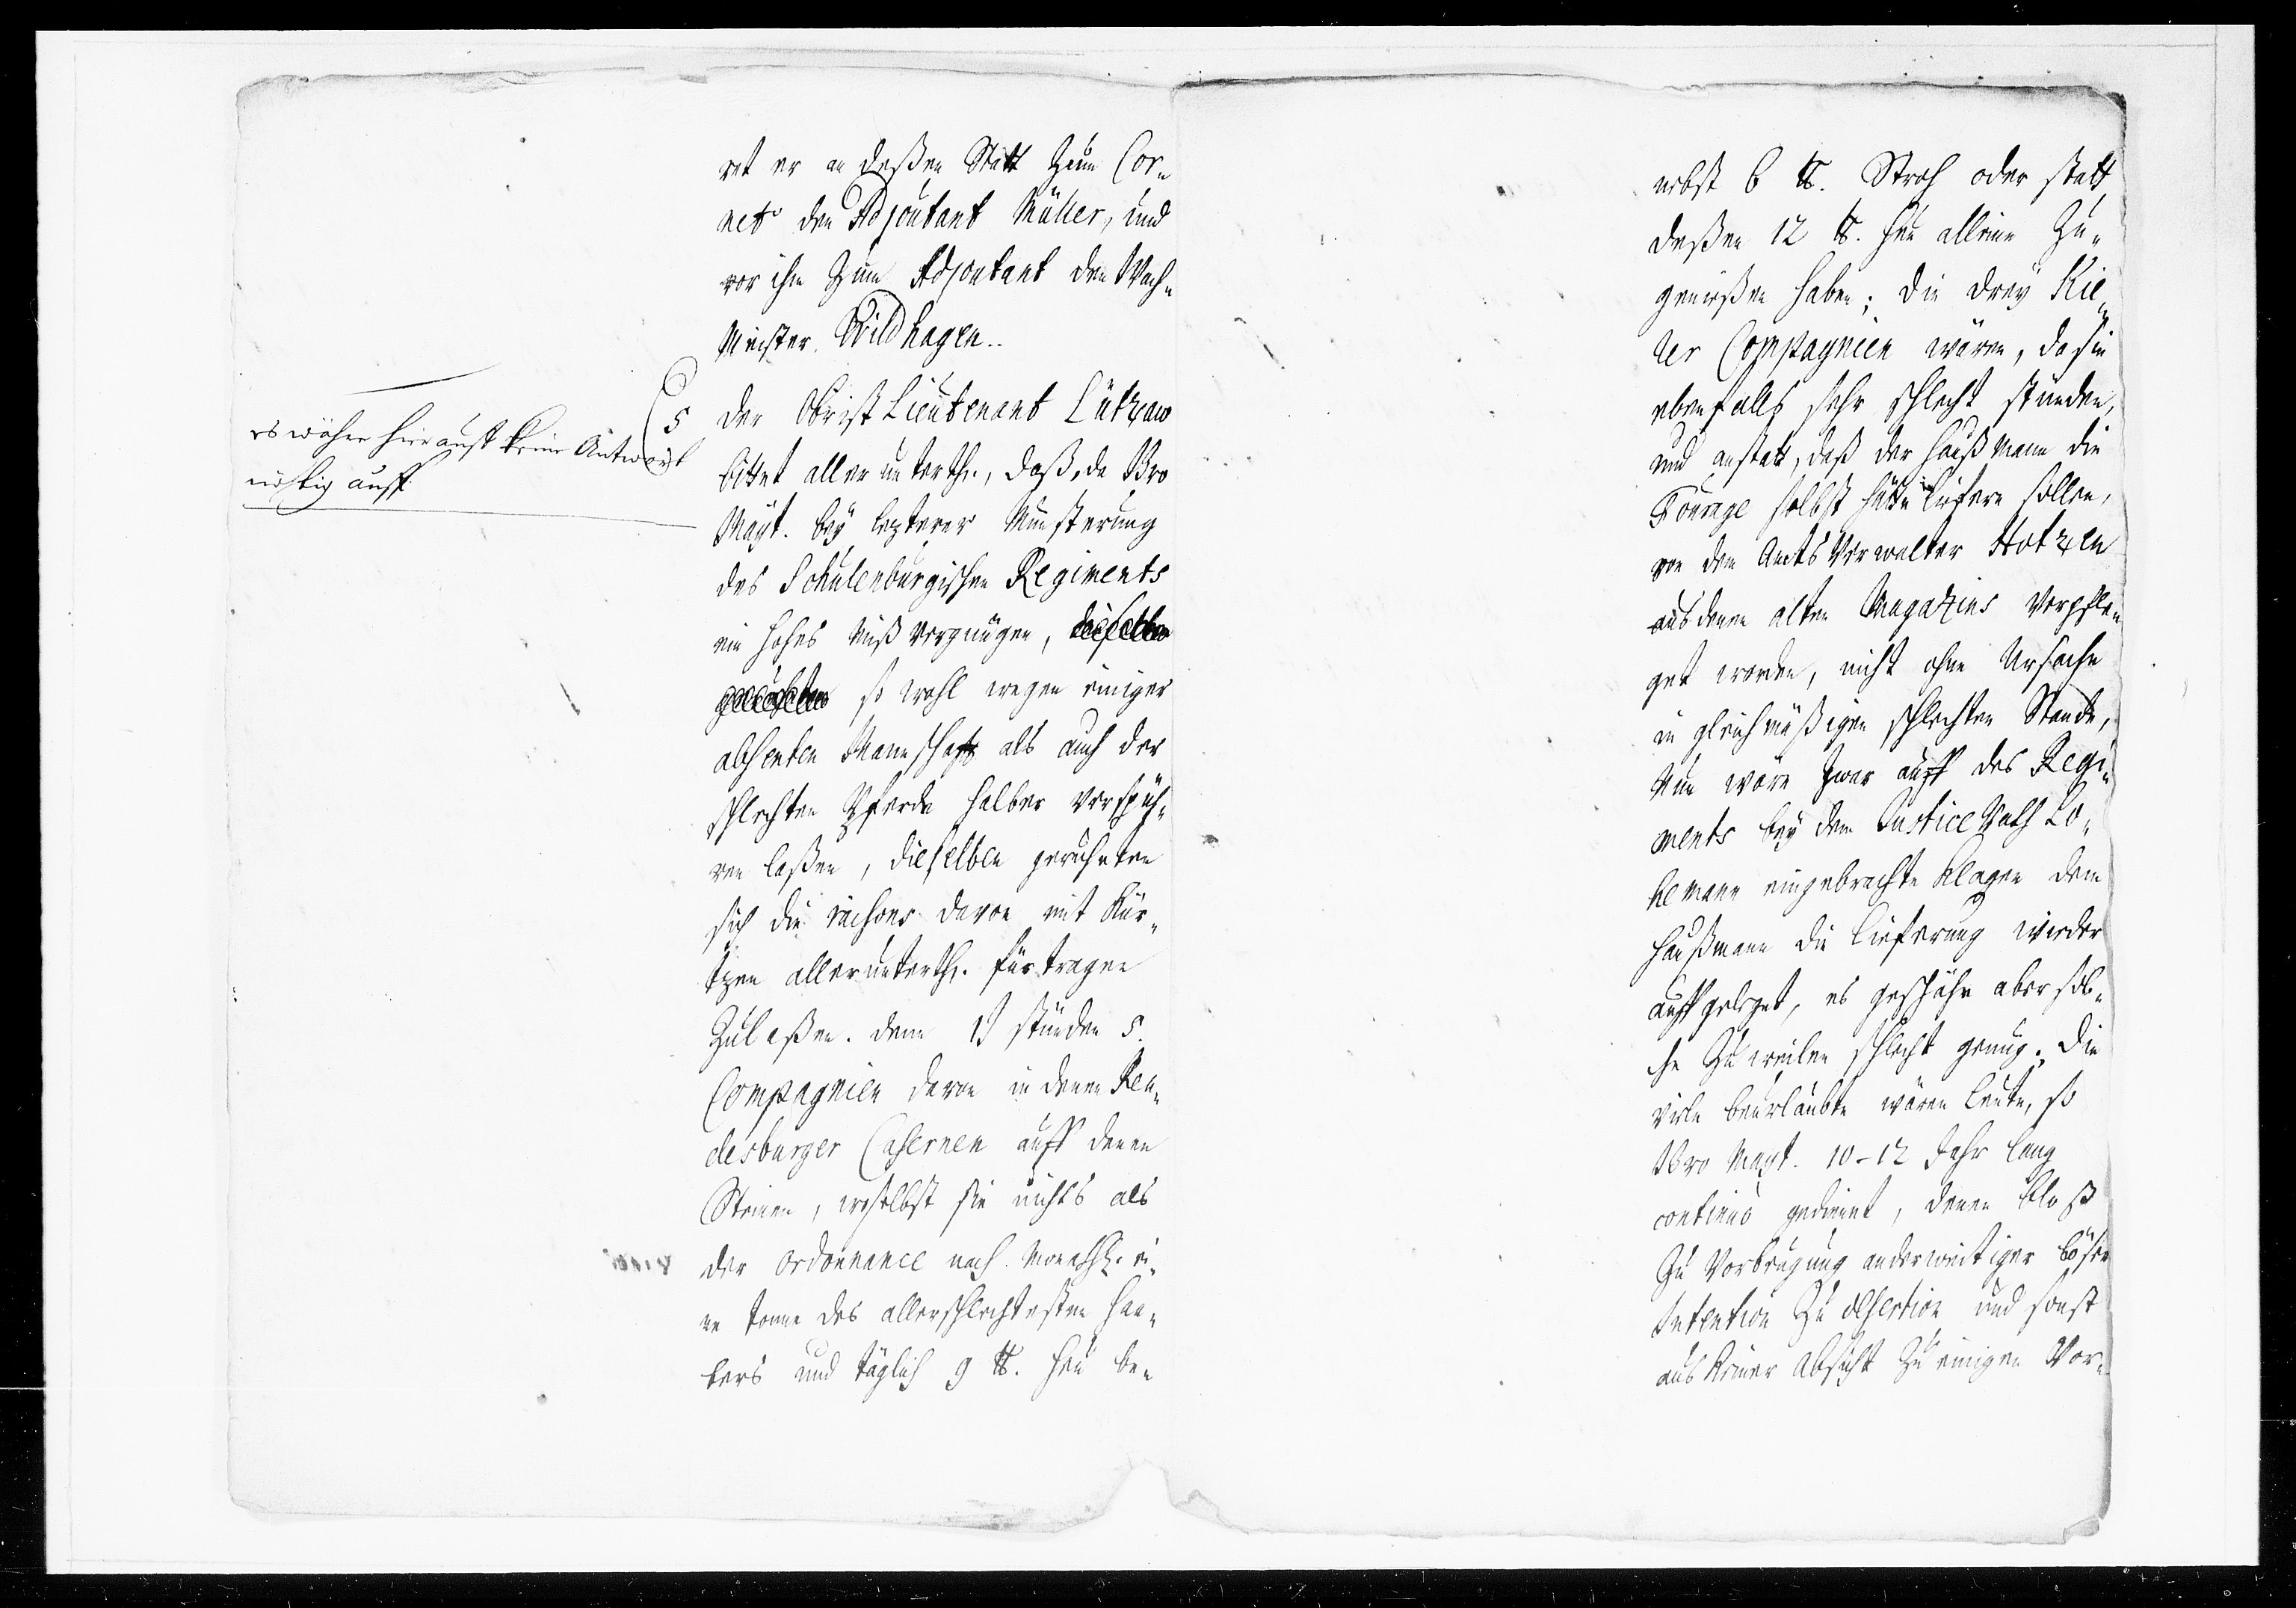 ret er an deßen Statt zum Cor„
net den Adjoutant Müller, und
vor ihn zum Adjoutant den Wach„
Meister Wildhagen..
5
der Obrist Lieutenant Lützow
bittet allerunterth., daß, da Bro
Mayt. bey lezterer Munsterung
des Schulenburgischen Regiments
ein hohes Miß Vergnügen, dieselben
so wohl wegen einiger
absenten Mannschafft als auch der
schlechten Pferde halber verspüh„
ren laßen, dieselben geruheten
sich die raisons davon mit Kür„
tzen allerunterth. fürtragen
zulaßen. denn 1) stünden 5.
Compagnien davon in denen Ren„
desburger Casernen auff denen
Steinen, woselbst sie nichts als
der ordonnance nach monathl. ei„
ne Tonne des allerschlechtesten Haa„
bers und täglich 9 ℔. Heu be„
es wäre hierauff keine Antwort
nöhtig auff
nebst 6 ℔. Stroh oder statt
deßen 12 ℔. Heu alleine zu„
genießen haben; die drey Kie„
ler Compagnien wären, da sie
ebenfalls sehr schlecht stünden,
und anstatt, daß der Haußmann die
Fourage selbst hätte liefern sollen,
von dem Amts Verwalter Hotzen
aus denen alten Magazins verpfle„
get worden, nicht ohne Ursache
in gleichmäßigen schlechten Stande,
Nun wäre zwar auff des Regi„
ments bey dem Justice Rath Lo„
hemann eingebrachte Klagen dem
Haußmann die Lieferung wieder
auffgeleget, es geschähe aber sol„
che zu weilen schlecht genug. Die
viele beurlaubte wären Leute, so
Ihro Mayt. 10-12 Jahr lang
continuò gedienet, denen bloß
zu Vorbeugung anderweitiger böser
Intention zu desertion und sonst
aus keiner Absicht zu einigen Vor„